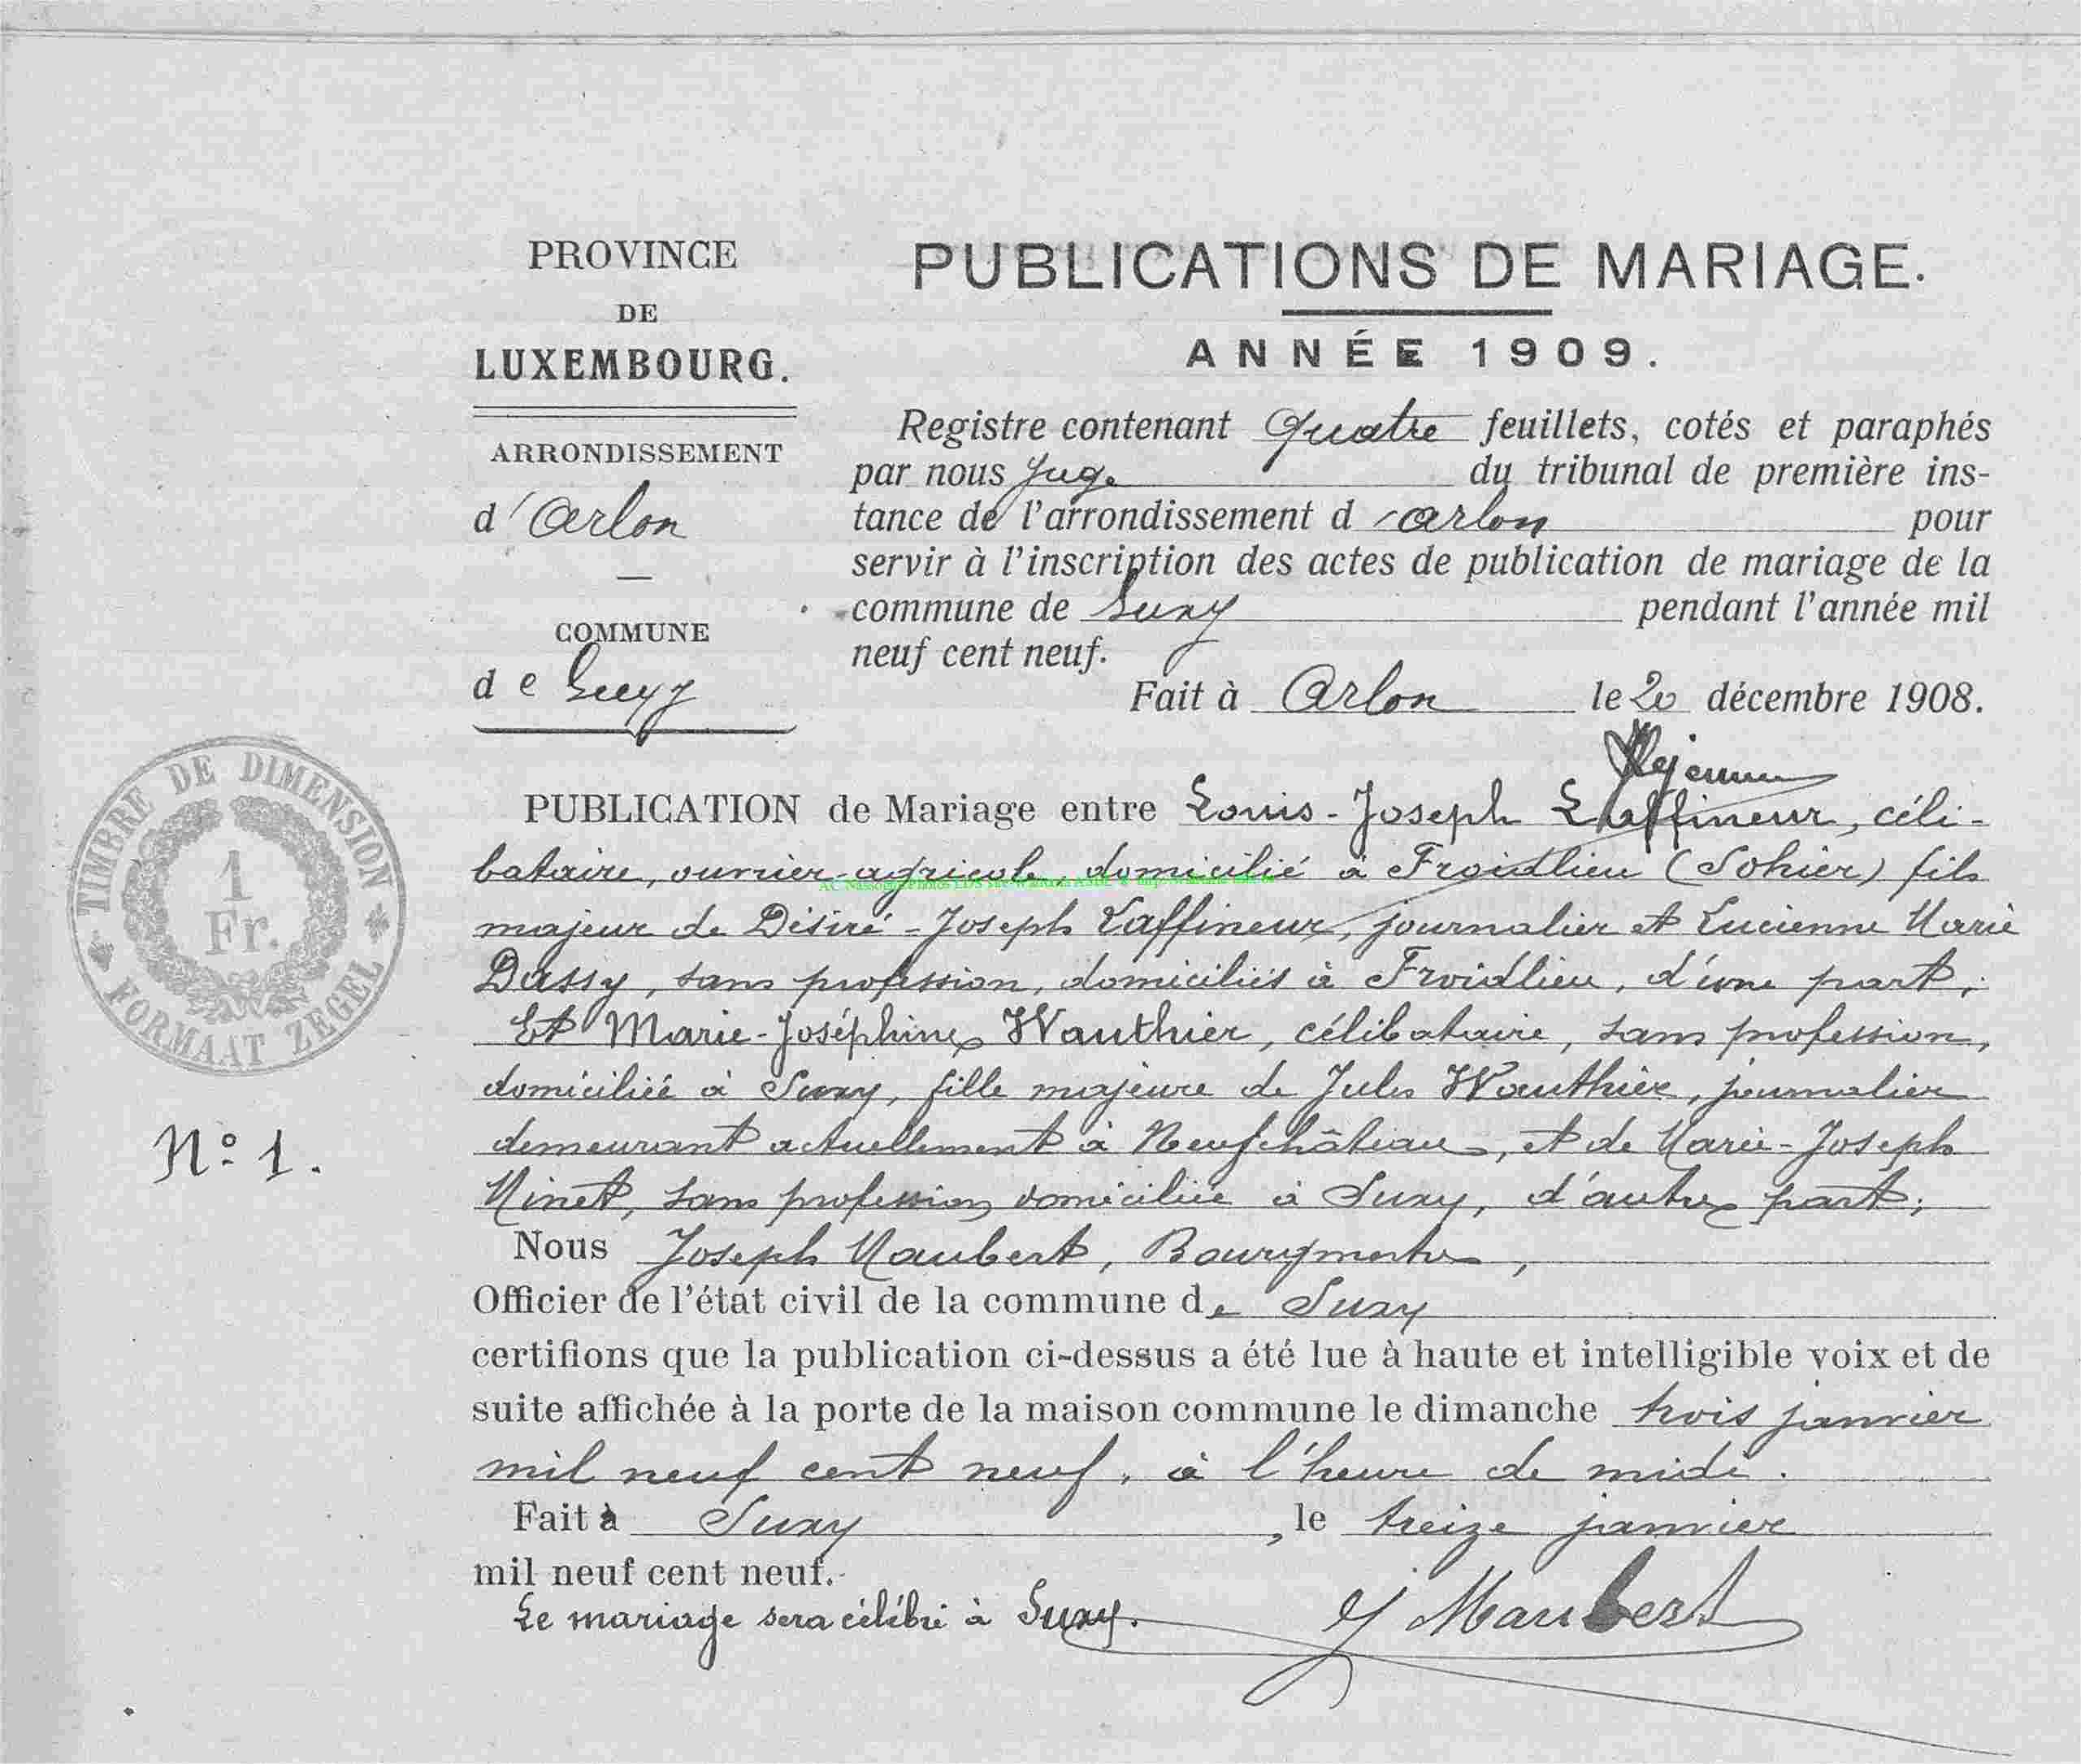 PROVINCE
DE
LUXEMBOURG.
ARRONDISSEMENT
d'Arlon
COMMUNE
de Suxy
TIMBRE DE DIMENSION
1
Fr.
FORMAAT ZEGEL
N° 1.
PUBLICATIONS DE MARIAGE.
ANNÉE 1909.
Registre contenant Quatre feuillets, cotés et paraphés
par nous Juge du tribunal de première ins-
tance de l'arrondissement d'Arlon pour
servir à l'inscription des actes de publication de mariage de la
commune de Suxy pendant l'année mil
neuf cent neuf.
Fait à Arlon le 20 décembre 1908.
PUBLICATION de Mariage entre Louis-Joseph Laffineur, céli-
bataire, ouvrier-agricole, domicilié à Froidlieu (Sohier) fils
majeur de Désiré-Joseph Laffineur, journalier et Lucienne Marie
Dassy, sans profession, domiciliés à Froidlieu, d'une part;
Et Marie-Joséphine Wauthier, célibataire, sans profession,
domiciliée à Suxy, fille majeure de Jules Wauthier, journalier
demeurant actuellement à Neufchâteau, et de Marie-Joseph
Ninet, sans profession domiciliée à Suxy, d'autre part;
Nous Joseph Maubert, Bourgmestre,
Officier de l'état civil de la commune de Suxy
certifions que la publication ci-dessus a été lue à haute et intelligible voix et de
suite affichée à la porte de la maison commune le dimanche trois janvier
mil neuf cent neuf, à l'heure de midi.
Fait à Suxy, le treize janvier
mil neuf cent neuf.
Le mariage sera célébré à Suxy.
J Maubert